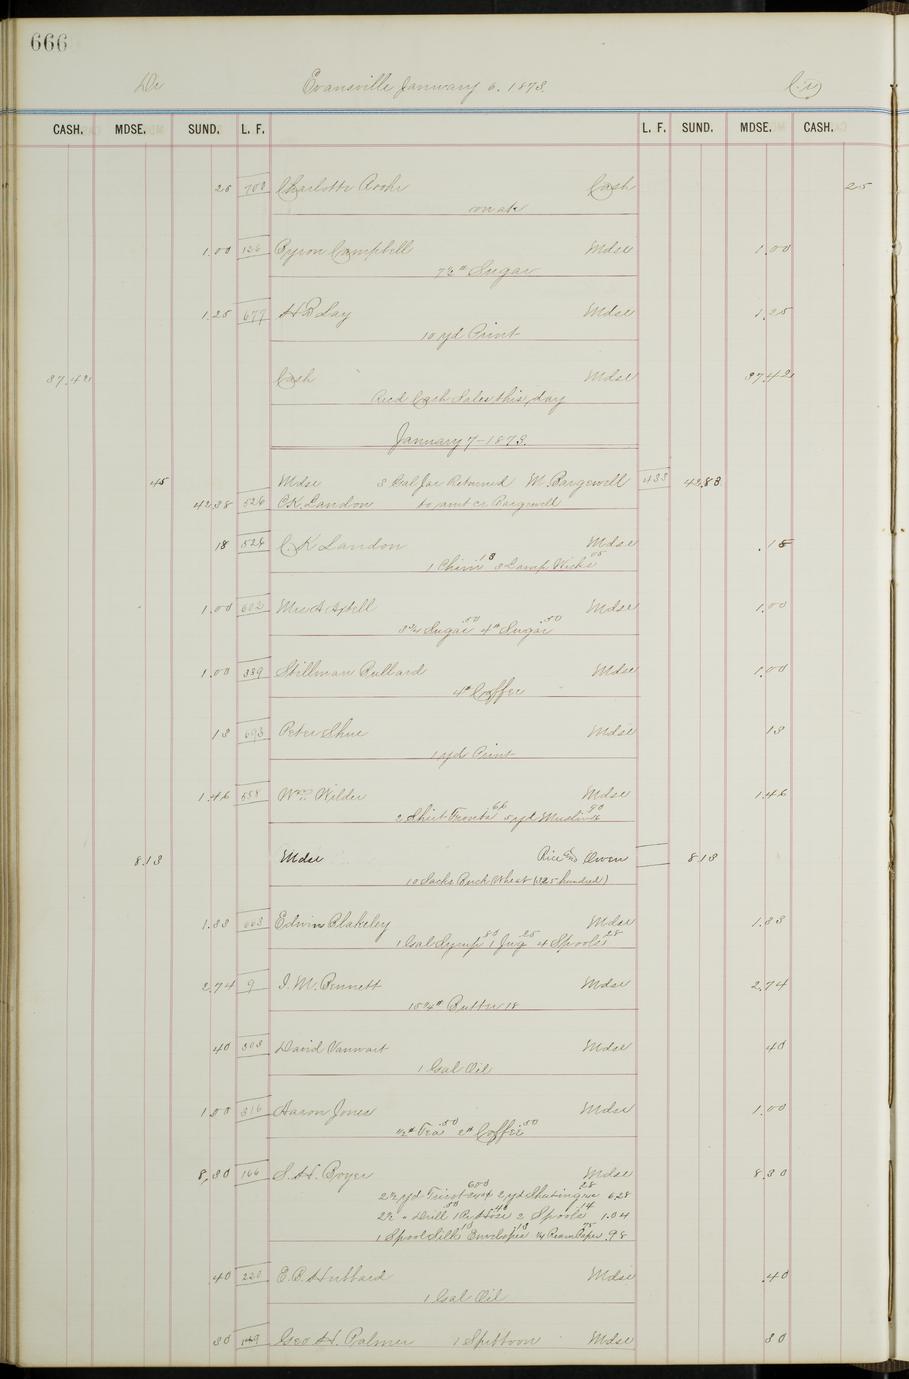 666
Dr Evansville January 6. 1873. Cr
CASH. MDSE. SUND. L. F. L. F. SUND. MDSE. CASH.
25 700 Charlotte Cash 25
on a/c
1.00 126 Byron Campbell Mdse 1.00
7½# Sugar
1.25 677 Day Mdse 1.25
10 yd Print
37.42 Cash Mdse 37.42
Recd Cash Sales this day
January 7-1873.
45 Mdse 3 Gal Jar Returned M. Bargewell 433 42.83
42.38 526 C.K. Landon to amt cr Bargewell
18 526 C. K Landon Mdse .18
1 Chim 13 3 Lamp Wicks 05
1.00 602 Mrs A Axtell Mdse 1.00
Sugar 50 4# Sugar 50
1.00 339 Stillman Bullard Mdse 1.00
4# Coffee
13 693 Peter Shue Mdse 13
1 yd Print
1.46 558 Wm Wilder Mdse 1.46
2 Shirt Fronts 66 5 yd Muslin 16 90
8.13 Mdse Owen 8.13
10 Sacks Buck Wheat (325 hundred)
1.33 663 Edwin Blakeley Mdse 1.33
1 Gal Syrup 80 1 Jug 25 4 Spools 28
2.74 9 I. M. Bennett Mdse 2.74
15¼# Butter 18
40 303 David Vanwart Mdse 40
1 Gal Oil
1.00 316 Aaron Jones Mdse 1.00
½# Tea 50 2# Coffee 50
8.30 166 S. H. Boyer Mdse 8.30
2½ yd 600 2 yd Sheeting 28 6.28
2½ " Drill 50 1 Pr Hose 40 2 Spools 14 1.04
1 Spool Silk 10 Envelopes 13 ¼ Ream Paper 75 .98
40 220 E. C. Hubbard Mdse .40
1 Gal Oil
80 149 Geo H. Palmer 1 Spittoon Mdse 80